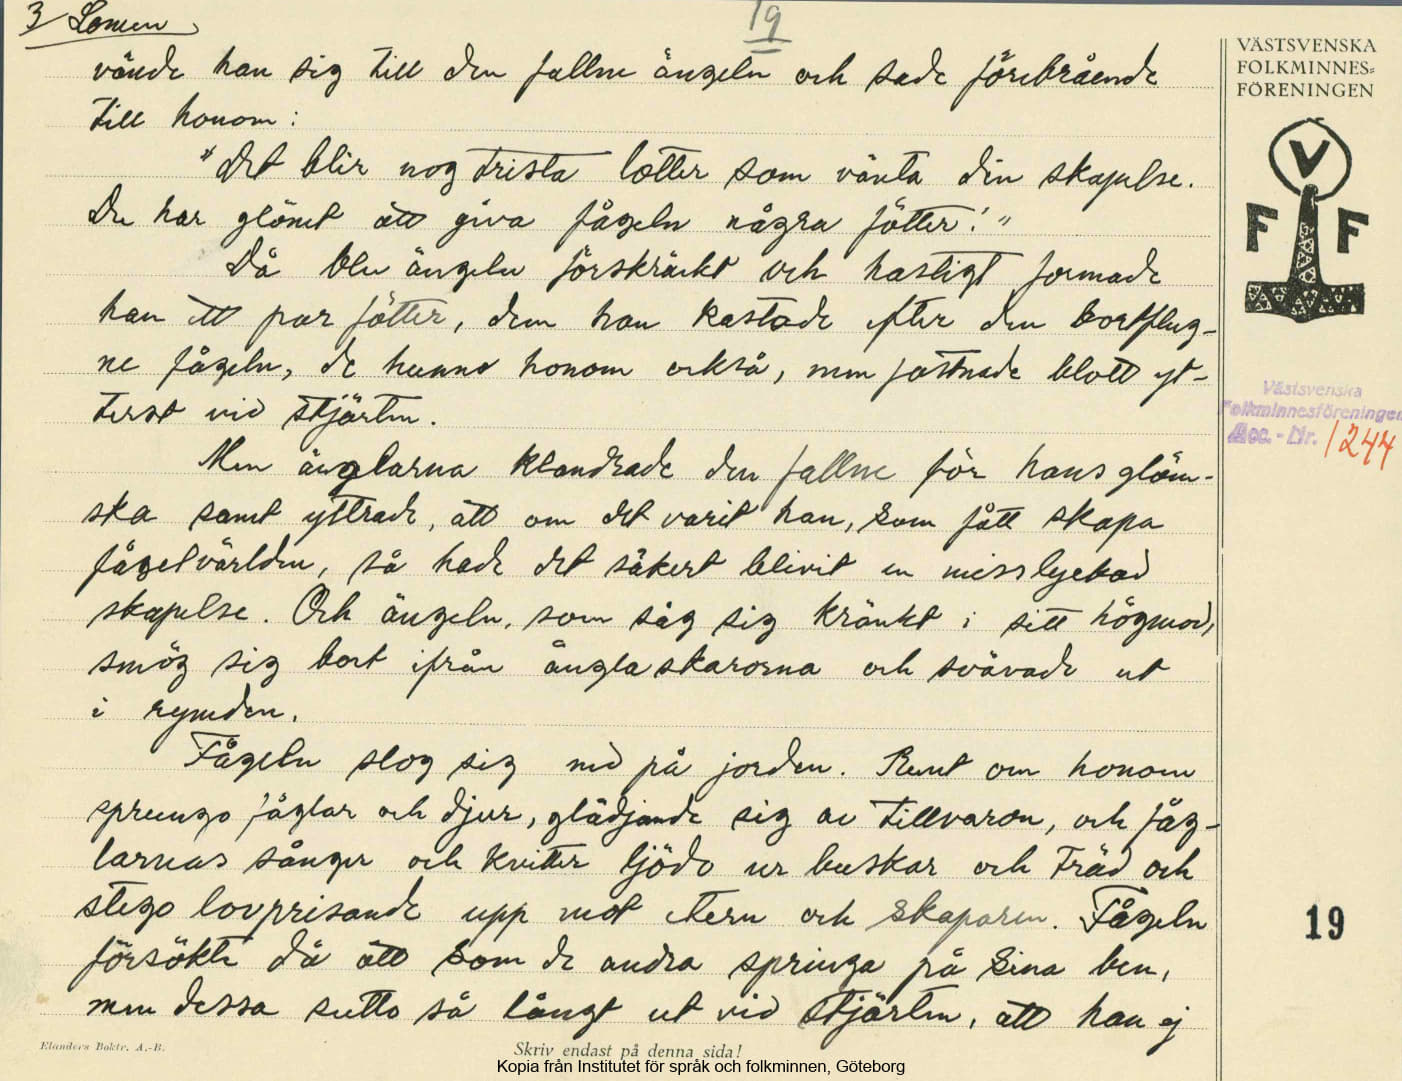 3 Lomen
19
vände han sig till den fallne ängeln och sade förebrående
till honom:
"Det blir nog trista lotter som vänta din skapelse.
Du har glömt att giva fågeln några fötter!"
Då blev ängeln förskräckt och hastigt formade
han ett par fötter, dem han kastade efter den bortflug-
ne fågeln, de hunno honom också, men fastnade blott yt-
terst vid stjärten.
Men änglarna klandrade den fallne för hans glöm-
ska samt yttrade, att om det varit han, som fått skapa
fågelvärlden, så hade det säkert blivit en misslyckad
skapelse. Och ängeln, som såg sig kränkt i sitt högmod,
smög sig bort ifrån änglaskarorna och svävade ut
i rymden.
Fågeln slog sig ned på jorden. Runt om honom
sprungo fåglar och djur, glädjande sig av tillvaron, och fåg-
larnas sånger och kvitter ljödo ur buskar och träd och
stego lovprisande upp mot etern och skaparen. Fågeln
försökte då att som de andra springa på sina ben,
men dessa sutto så långt ut vid stjärten, att han ej
VÄSTSVENSKA
FOLKMINNES=
FÖRENINGEN
V
F F
Västsvenska
Folkminnesföreningen
Acc. - Nr. 1244
19
Elanders Boktr. A.-B.
Skriv endast på denna sida!
Kopia från Institutet för språk och folkminnen, Göteborg